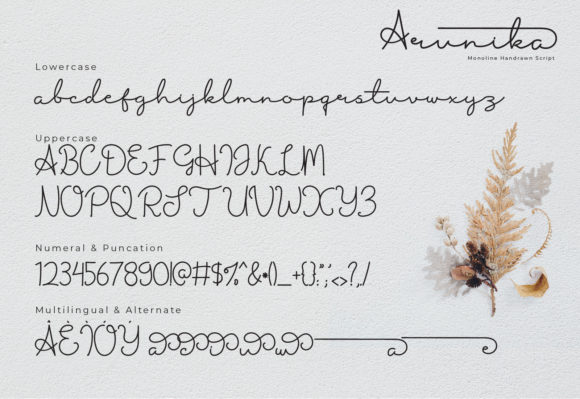 Arunika
Monoline Handrawn Script
Lowercase
abcdefghijklmnopqrstuvwxyz
Uppercase
ABCDEFGHIJKLM
NOPQRSTUVWXYZ
Numeral & Puncation
12345678901@#$%^&*()_+{}:;"'<>?,/
Multilingual & Alternate